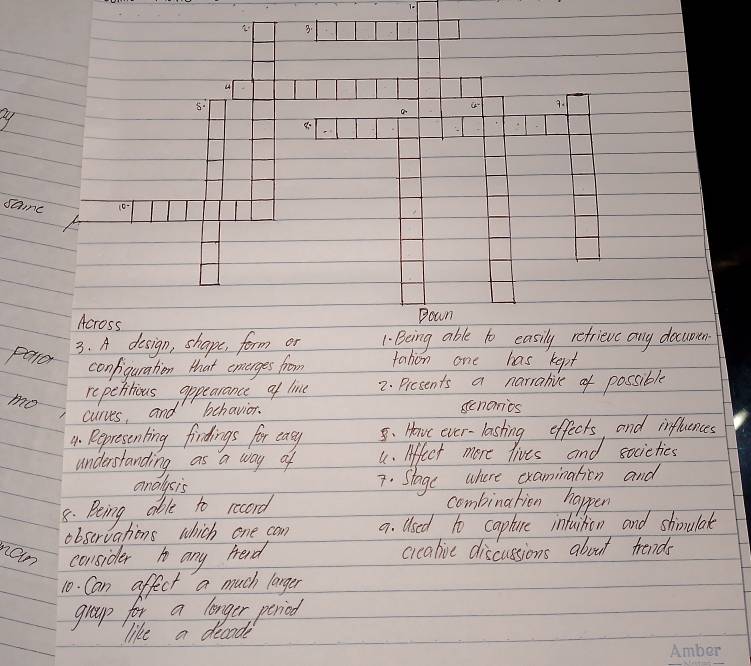 1.
2.
3.
4.
5.
6.
7.
8.
9.
10.
ay
same
para
mo
man
Across
3. A design, shape, form or
configuration that emerges from
repetitious appearance of line
curves, and behavior.
4. Representing findings for easy
understanding as a way of
analysis
8. Being able to record
observations which one can
consider to any trend
10. Can affect a much larger
group for a longer period
like a decade
Down
1. Being able to easily retrieve any documen-
tation one has kept
2. Presents a narrative of possible
senarios
5. Have ever-lasting effects and influences
6. Affect more lives and societies
7. Stage where examination and
combination happen
9. Used to capture intuition and stimulate
creative discussions about trends
Amber